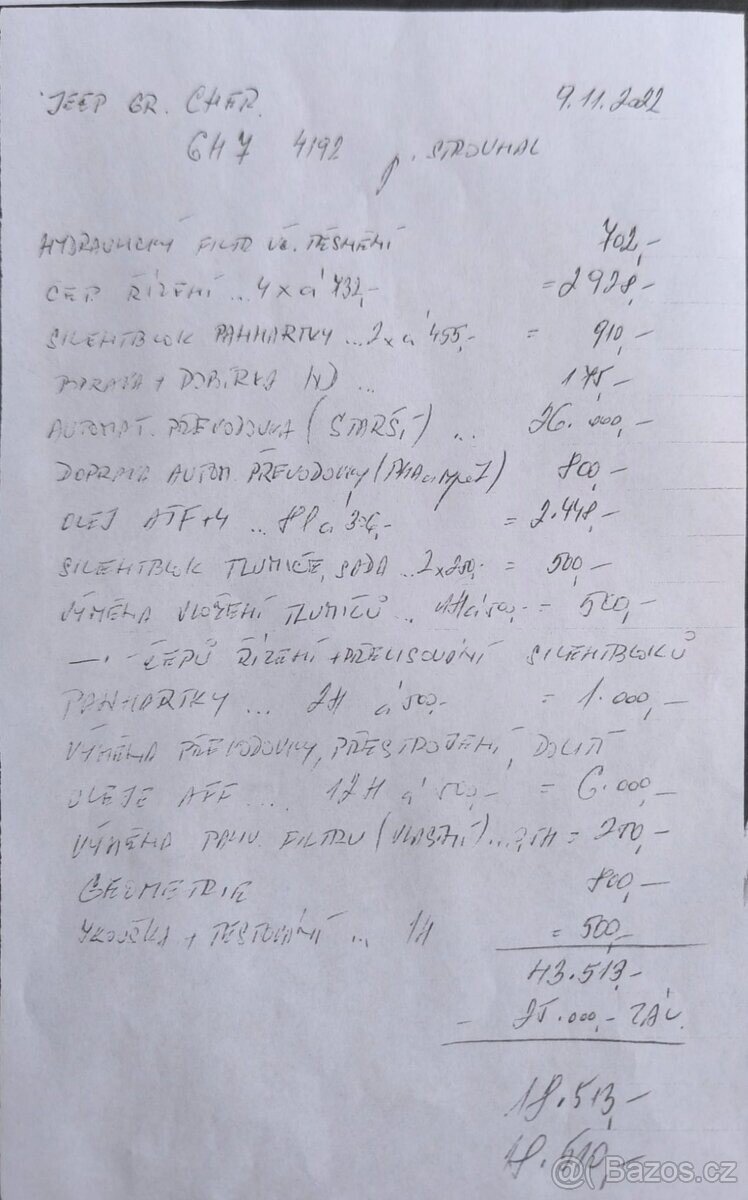 JEEP GR. CHER. 9.11.2022
6H7 4192 p. STROUHAL
HYDRAULICKÝ FILTR VČ. TĚSNĚNÍ 702,-
ČEP ŘÍZENÍ .. 4 x á 732,- = 2928,-
SILENTBLOK PANHARTKY ... 2 x á 455,- = 910,-
DOPRAVA + DOBÍRKA ND ... 175,-
AUTOMAT. PŘEVODOVKA (STARŠÍ) ... 26.000,-
DOPRAVA AUTOM. PŘEVODOVKY 800,-
OLEJ ATF+4 ... 8l á 306,- = 2.448,-
SILENTBLOK TLUMIČE, SADA .. 2x250,- = 500,-
VÝMĚNA VLOŽENÍ TLUMIČŮ .. 1H á 500,- = 500,-
— " — ČEPŮ ŘÍZENÍ + PŘELISOVÁNÍ SILENTBLOKŮ
PANHARTKY ... 2H á 500,- = 1.000,-
VÝMĚNA PŘEVODOVKY, PŘESTROJENÍ, DOLITÍ
OLEJE ATF .... 12H á 500,- = 6.000,-
VÝMĚNA PALIV. FILTRU (VLASTNÍ) ... 0,5H = 250,-
GEOMETRIE 800,-
ZKOUŠKA + TESTOVÁNÍ ... 1H = 500,-
43.513,-
- 25.000,- ZÁL.
18.513,-
18.510,-
Bazos.cz